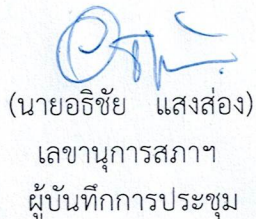 (นายอธิชัย แสงส่อง)
เลขานุการสภาฯ
ผู้บันทึกการประชุม